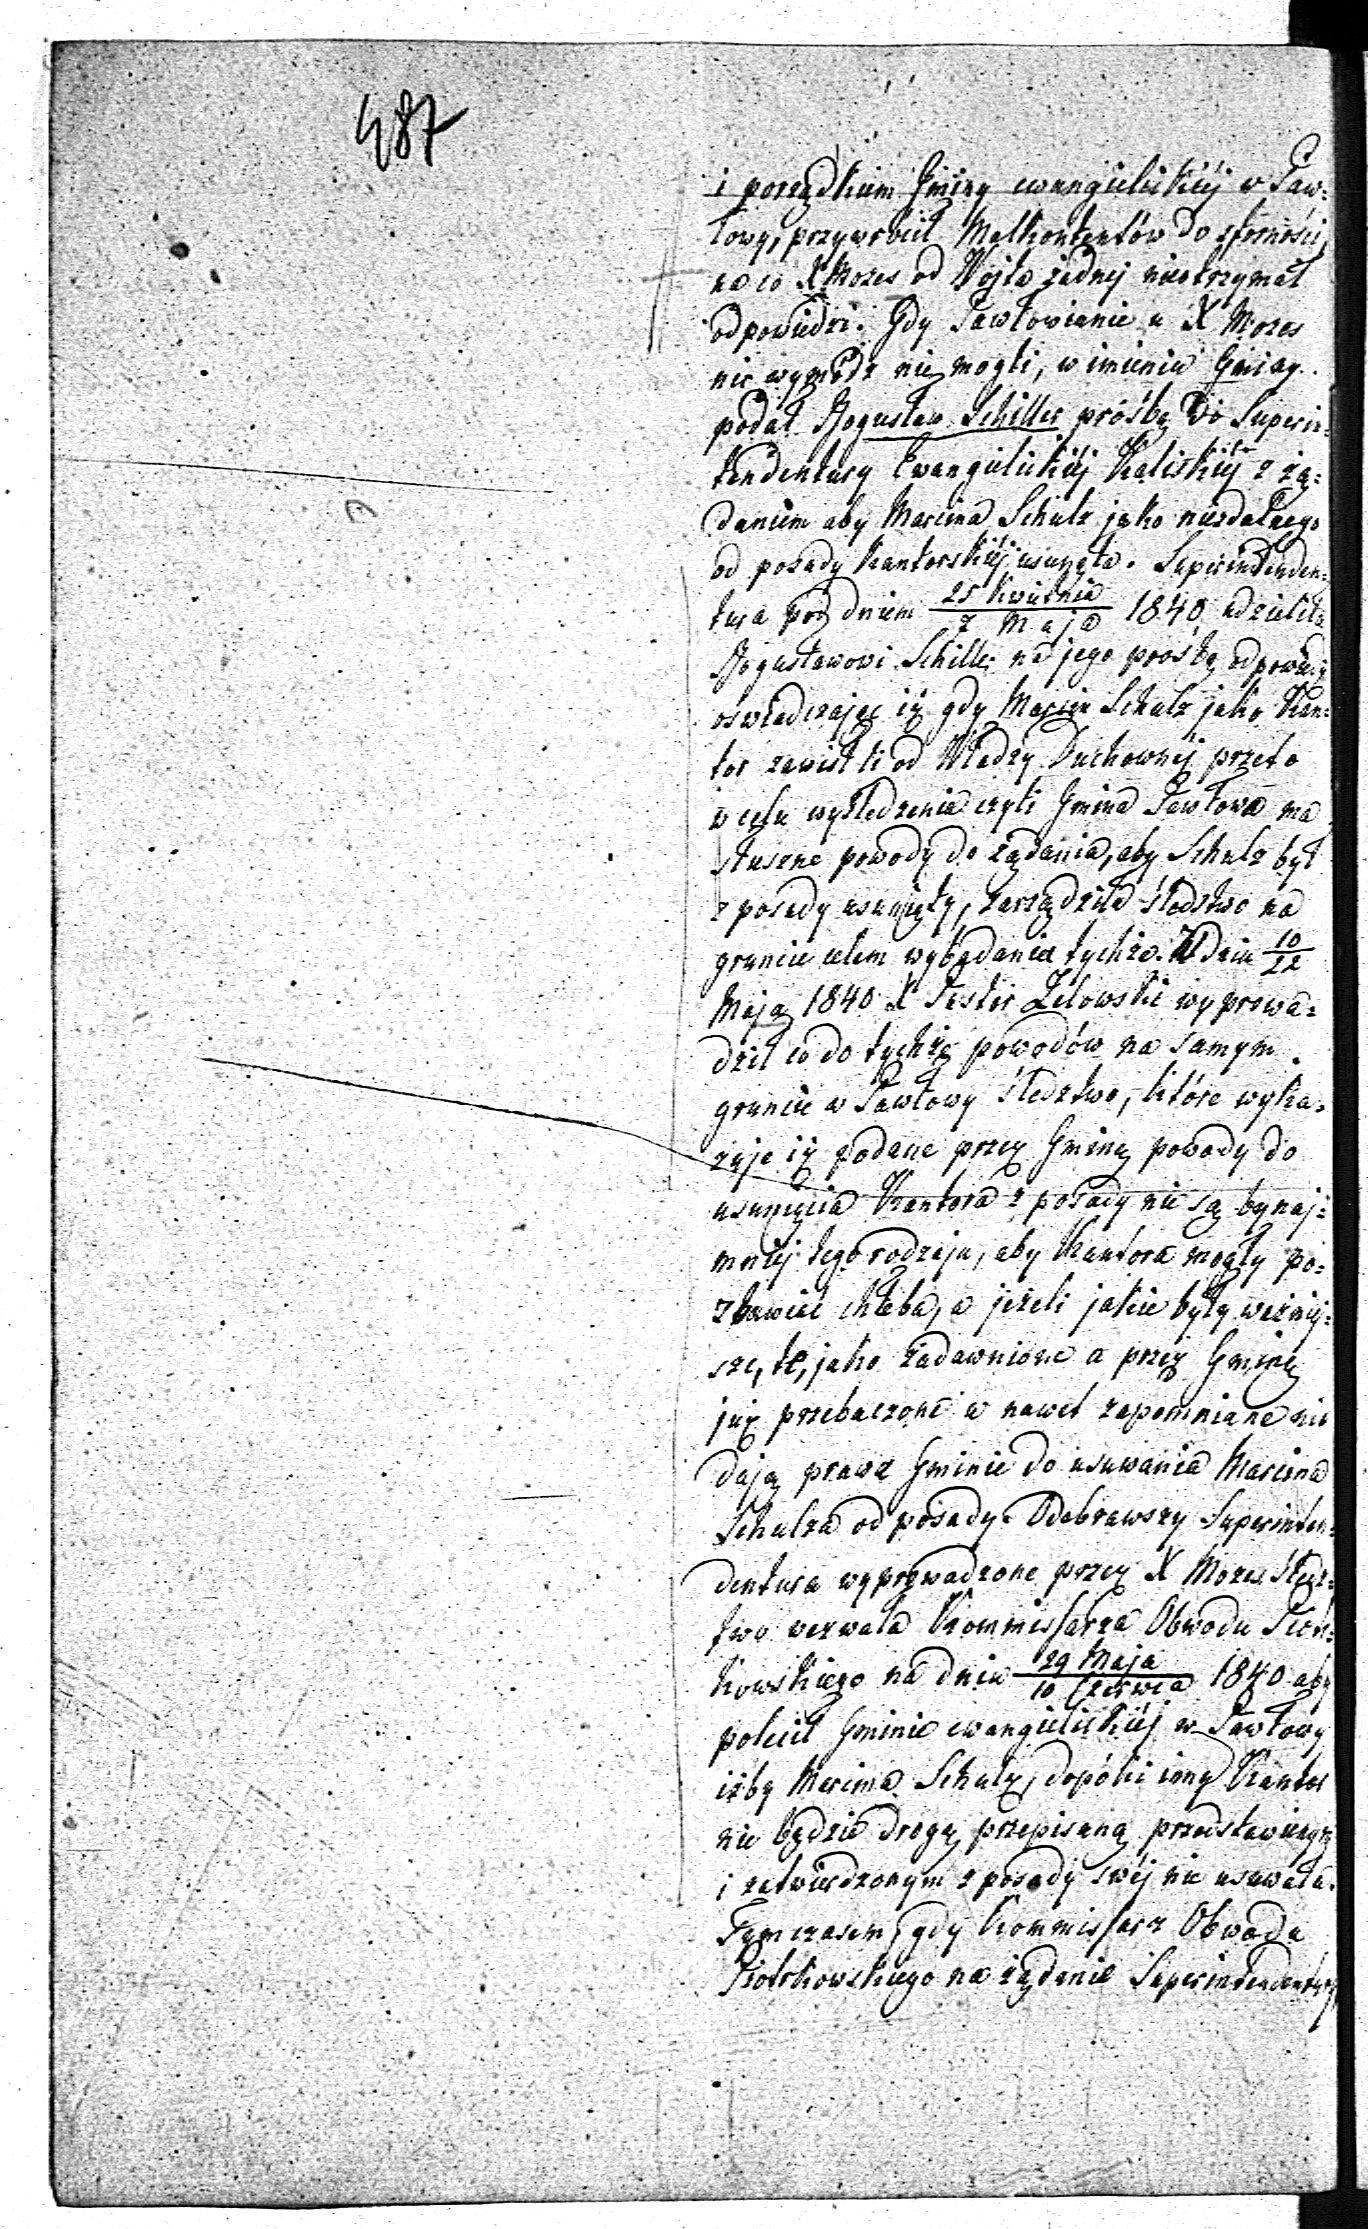 487
i porządkiem Gminy ewangielickiéj w Paw-
łowy, przywrócił Malkontentów do sforności,
na co X Mozes od Wójta żadnéj nieotrzymał
odpowiedzi. Gdy Pawłowianie u X Mozes
nic wymódz nie mogli, w imieniu Gminy
podał Bogusław Schiller prośbę do Superin-
tendentury Ewangielickiéj Kaliskiéj z żą-
daniem aby Marcina Schulz jako niezdatnego
od posady Kantorskiéj usunęła. Superindenden-
tura pod dniem 25 Kwietnia / 7 Maja 1840 udzieliła
Bogusławowi Schiller na jego prośbę odpowiedź
oswiadczając iż gdy Marcin Schulz jako Kan-
tor zawisł li od Władzy Duchownéj przeto
w celu wyśledzenia czyli Gmina Pawłowa ma
słuszne powody do żądania, aby Schulz był
z posady usunięty, zarządziła śledztwo na
gruncie celem wybadania tychże. W dniu 10/22
Maja 1840 X Pastor Zelowski wyprowa-
dził co do tychże powodów na samym
gruncie w Pawłowy śledztwo, które wyka-
zuje iż podane przez Gminę powody do
usunięcia Kantora z posady nie są bynaj-
mniéj tego rodzaju, aby Kantora mogły po-
zbawiać chleba, a jeżeli jakie były ważniej-
sze, te, jako zadawnione a przez Gminę
już przebaczone a nawet zapomniane nie
dają prawa Gminie do usuwania Marcina
Schulza od posady. Odebrawszy Superinten-
dentura wyprowadzone przez X Mozes śledz-
two wezwała Kommissarza Obwodu Piotr-
kowskiego na dniu 29 Maja / 10 Czerwca 1840 aby
polecił Gminie ewangielickiéj w Pawłowy
iżby Marcina Schulz, dopóki inny Kantor
nie będzie drogą przepisaną przedstawionym
i zatwierdzonym z posady swéj nie usuwała.
Tymczasem, gdy Kommissarz Obwodu
Piotrkowskiego na żądanie Superintendentury